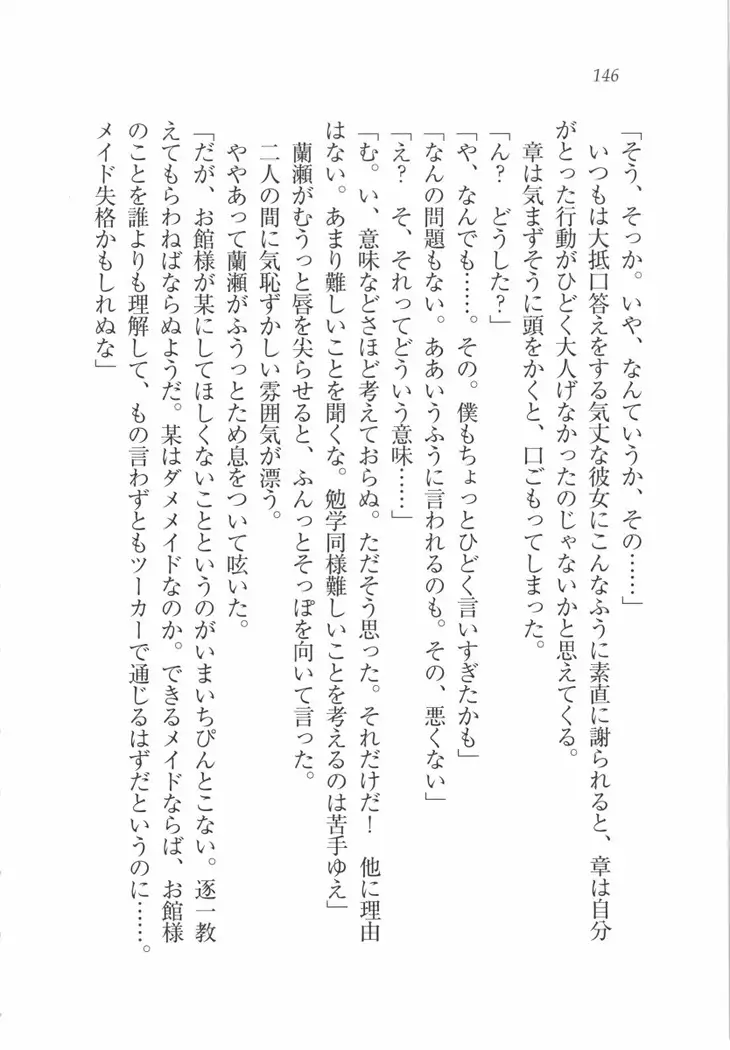 146
「そう、そっか。いや、なんていうか、その……」
いつもは大抵口答えをする気丈な彼女にこんなふうに素直に謝られると、章は自分
がとった行動がひどく大人げなかったのじゃないかと思えてくる。
章は気まずそうに頭をかくと、口ごもってしまった。
「ん？　どうした？」
「や、なんでも……。その。僕もちょっとひどく言いすぎたかも」
「なんの問題もない。ああいうふうに言われるのも。その、悪くない」
「え？　そ、それってどういう意味……」
「む。い、意味などさほど考えておらぬ。ただそう思った。それだけだ！　他に理由
はない。あまり難しいことを聞くな。勉学同様難しいことを考えるのは苦手ゆえ」
蘭瀬がむうっと唇を尖らせると、ふんっとそっぽを向いて言った。
二人の間に気恥ずかしい雰囲気が漂う。
ややあって蘭瀬がふうっとため息をついて呟いた。
「だが、お館様が某にしてほしくないことというのがいまいちぴんとこない。逐一教
えてもらわねばならぬようだ。某はダメメイドなのか。できるメイドならば、お館様
のことを誰よりも理解して、もの言わずともツーカーで通じるはずだというのに……。
メイド失格かもしれぬな」